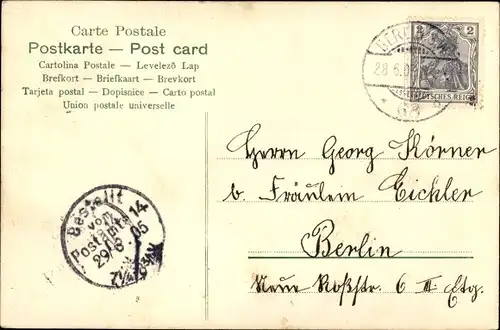 Carte Postale
Postkarte — Post card
Cartolina Postale — Levelező Lap
Brefkort — Briefkaart — Brevkort
Tarjeta postal — Dopisnice — Carto postal
Union postale universelle
2 2
DEUTSCHES REICH
28.6.05
Herrn Georg Körner
b. Fräulein Eichler
Berlin
Neue Roßstr. 6 III Etg.
Bestellt
vom
Postamte 14
29/6 05